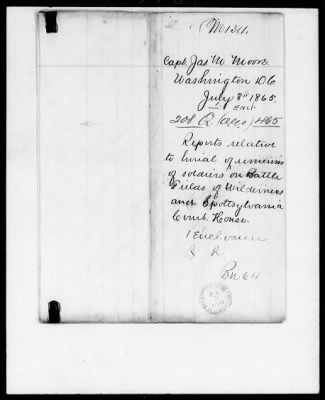 Capt. Jas. M. Moore
Washington D.C.
July 3" 1865.
1 Encl.
208 Q 1865
Reports relative
to burial of remains
of soldiers on Battle
Fields of Wilderness
and Spottsylvania
Court House.
1 Enclosure